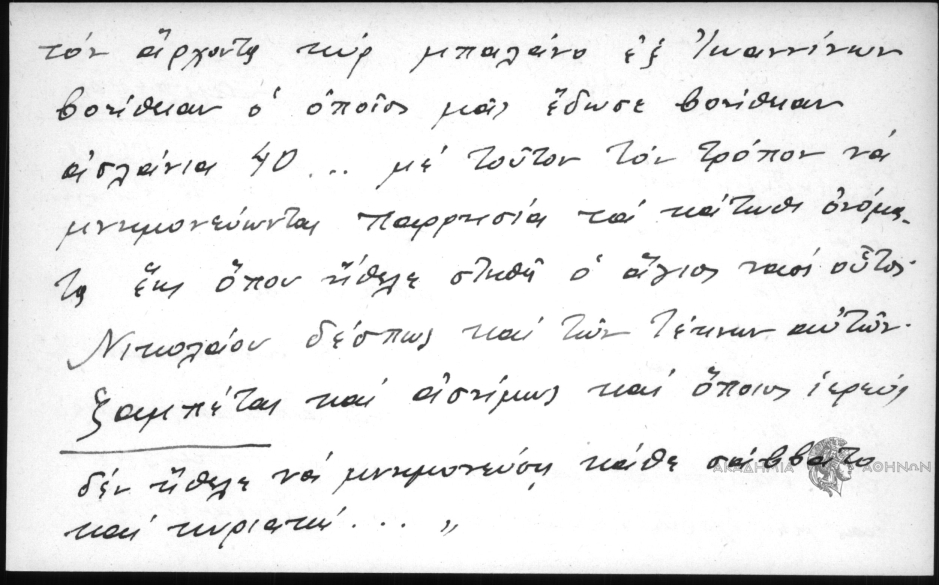 τόν ἄρχοντα κύρ μπαλάνο ἐξ Ἰωαννίνων
βοήθειαν ὁ ὁποῖος μᾶς ἔδωσε βοήθειαν
ἀσλάνια 40 ... μέ τοῦτον τόν τρόπον νά
μνημονεύωνται παρρησία τά κάτωθι ὀνόμα-
τα ἕως ὅπου ἤθελε στηθῆ ὁ ἅγιος ναός οὗτος·
Νικολάου δέσπως καί τῶν τέκνων αὐτῶν·
ξαμπέτας καί ἀσήμως καί ὅποιος ἱερεύς
δέν ἤθελε νά μνημονεύσῃ κάθε σάββατο
καί κυριακή ... „
ΑΚΑΔΗΜΙΑ ΑΘΗΝΩΝ